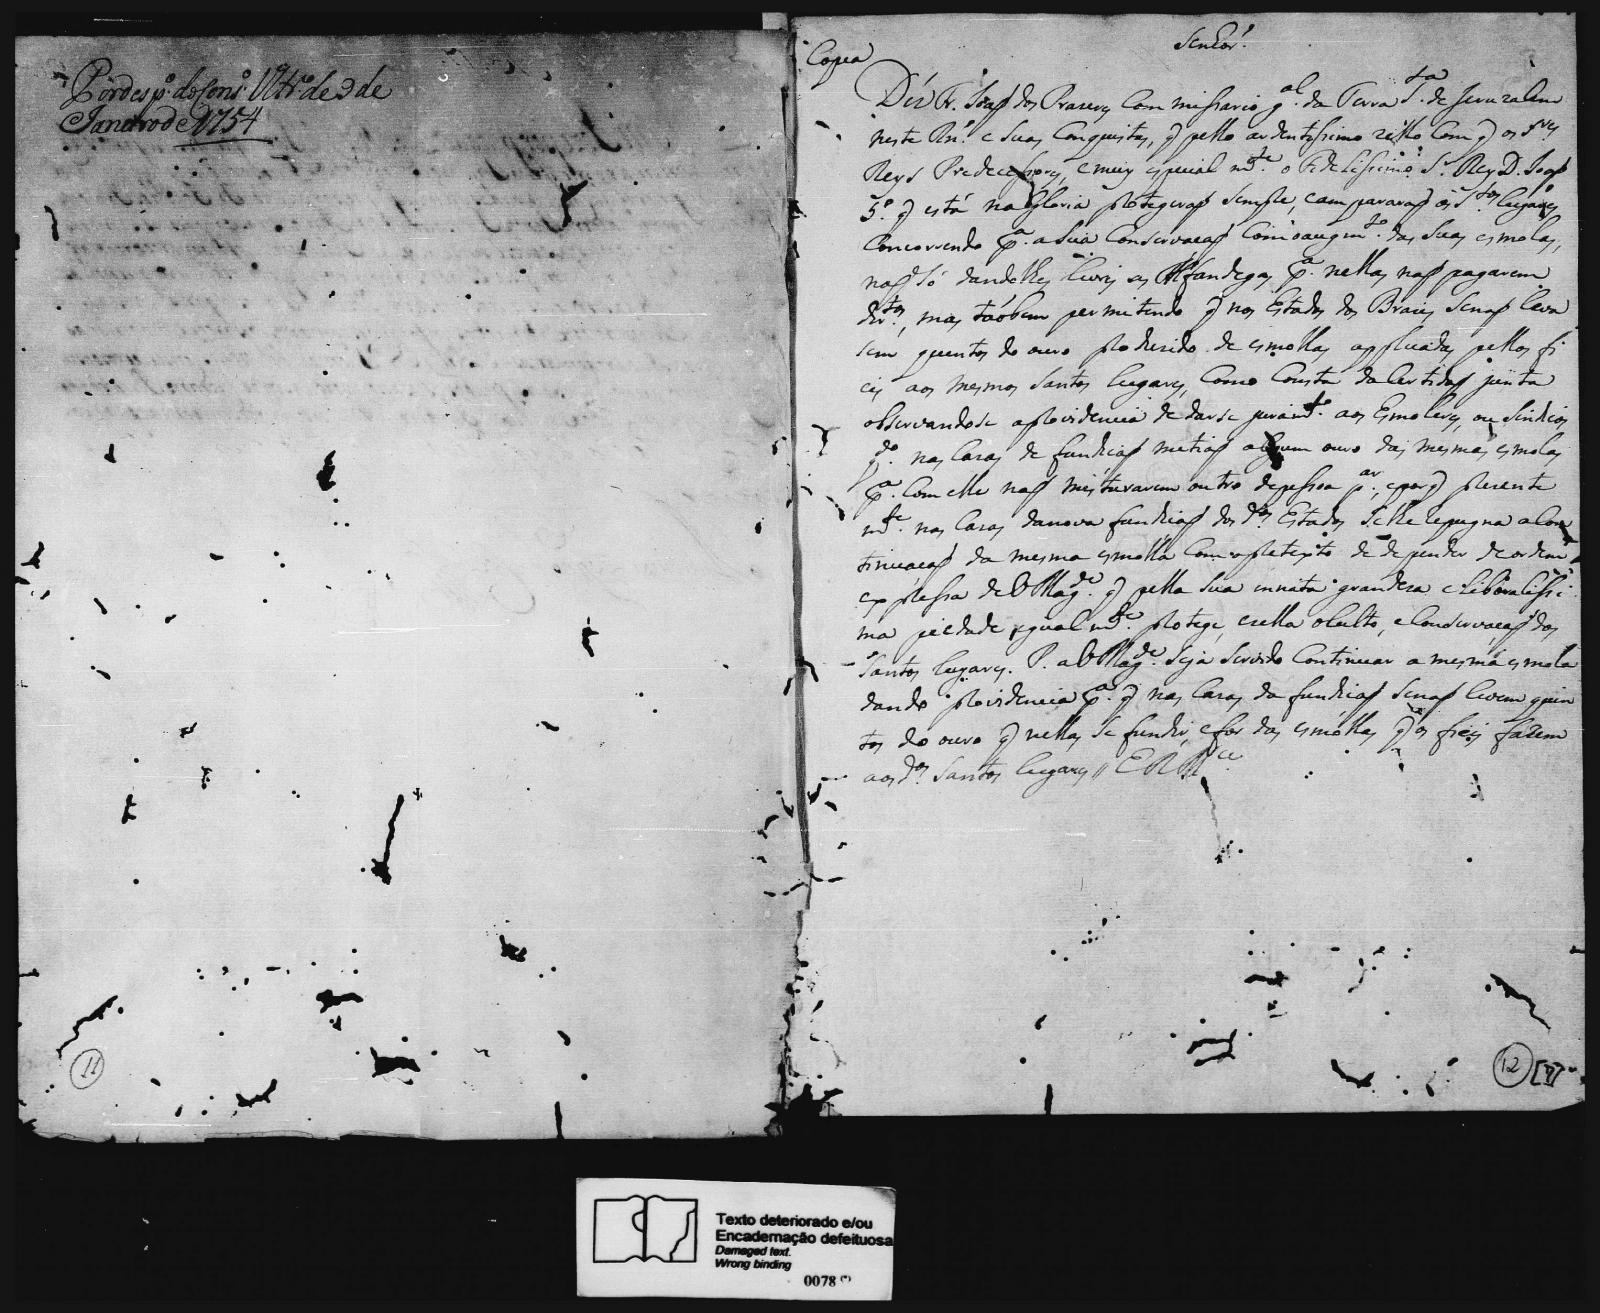 Por desp.º do Cons.º Ultr.º de 9 de
Janeiro de 1754
11
Senhor.
Copea
Diz Fr. Joaõ dos Prazeres Commissario g.al da Terra S.ta de Jeruzalem
neste Rn.º e suas Conquistas, q̃ pello ardentissimo zello Com q̃ os S.res
Reys Predecessores, e muy especial m.te o Fidelissimo S.r Rey D. Joaõ
5.º q̃ está na Gloria protegeraõ sempre, e ampararaõ os S.tos Lugares
Concorrendo p.ª a sua Conservaçaõ Com o augm.to das suas esmolas,
naõ só dandolhes livres as Alfandegas p.ª nellas naõ pagarem
dir.tos, mas taõbem permitindo q̃ nos Estados dos Brazis senaõ leva
sem quintos do ouro produzido de esmollas applicadas pellos fi
eis aos mesmos Santos Lugares, Como Consta da Certidaõ junta
observandose a providencia de darse juram.to aos Esmoleres, ou Sindicos
q.do nas Cazas de fundiçaõ metiaõ algum ouro das mesmas esmolas
p.ª Com elle naõ misturarem outro de pessoa p.ar, e porq̃ prezente
m.te nas Cazas da nova fundiçaõ dos d.os Estados se lhe repugna a Con
tinuaçaõ da mesma esmolla Com o pretexto de depender de ordem
expressa de V Mag.de q̃ pella sua innata grandeza e Liberalissi
ma piedade igual m.te protege, e zella o Culto, e Conservaçaõ dos
Santos Lugares. P. a V Mag.de Seja Servido Continuar a mesma esmola
dando providencia p.ª q̃ nas Cazas da fundiçaõ senaõ levem quin
tos do ouro q̃ nellas se fundir, e for das esmollas q̃ os fieis fazem
aos d.os Santos Lugares // E R M.ce
12 [7]
Texto deteriorado e/ou
Encadernação defeituosa
Damaged text.
Wrong binding
0078 (*)